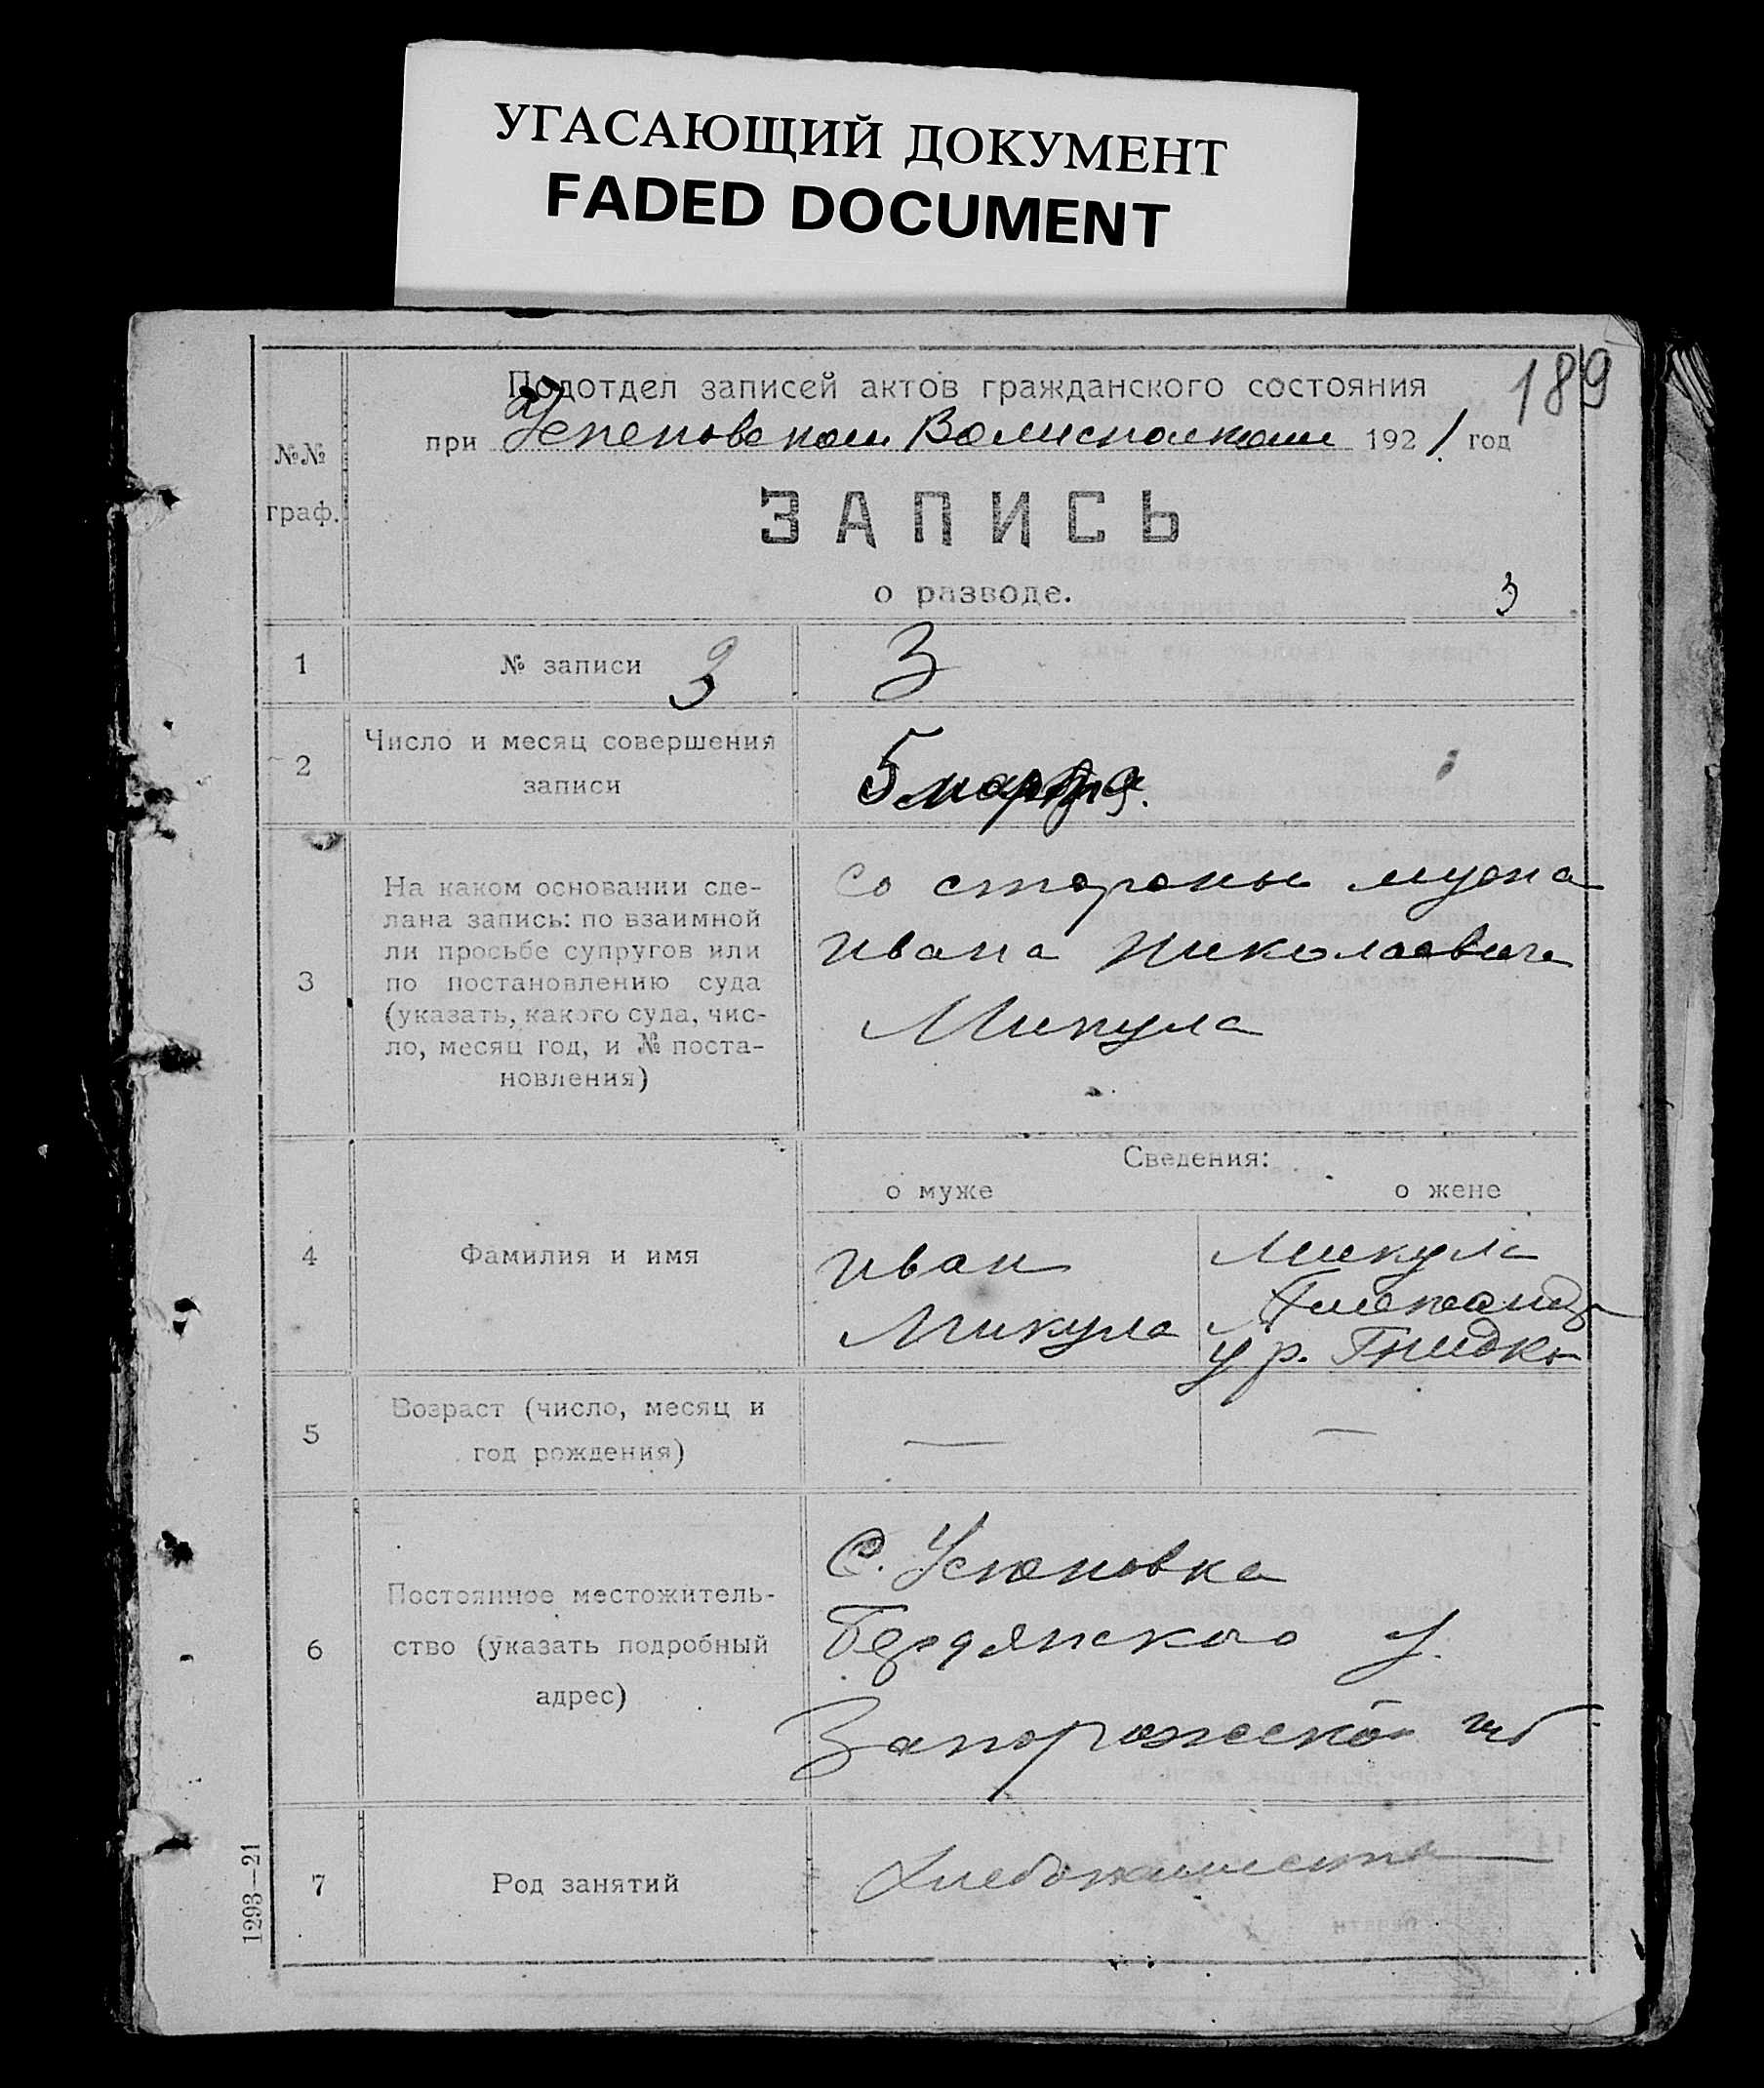 УГАСАЮЩИЙ ДОКУМЕНТ
FADED DOCUMENT
189
Подотдел записей актов гражданского состояния
при Волисполкоме 1921 год
№№
граф.
ЗАПИСЬ
о разводе.
3
1
№ записи 3
3
2
Число и месяц совершения
записи
5 марта.
3
На каком основании сде-
лана запись: по взаимной
ли просьбе супругов или
по постановлению суда
(указать, какого суда, чис-
ло, месяц год, и № поста-
новления)
Со стороны мужа
Ивана Николаевича
Микула
Сведения:
о муже
о жене
4
Фамилия и имя
Иван
Микула
Микула
ур. Гнидко
5
Возраст (число, месяц и
год рождения)
—
—
6
Постоянное местожитель-
ство (указать подробный
адрес)
С.
Бердянского у.
Запорожской губ
7
Род занятий
Хлебопашество
1293—21